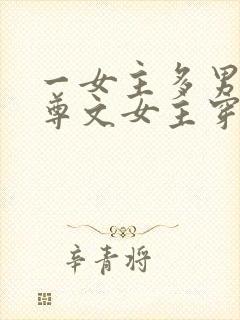 一女主多男
尊文女主穿
辛青将